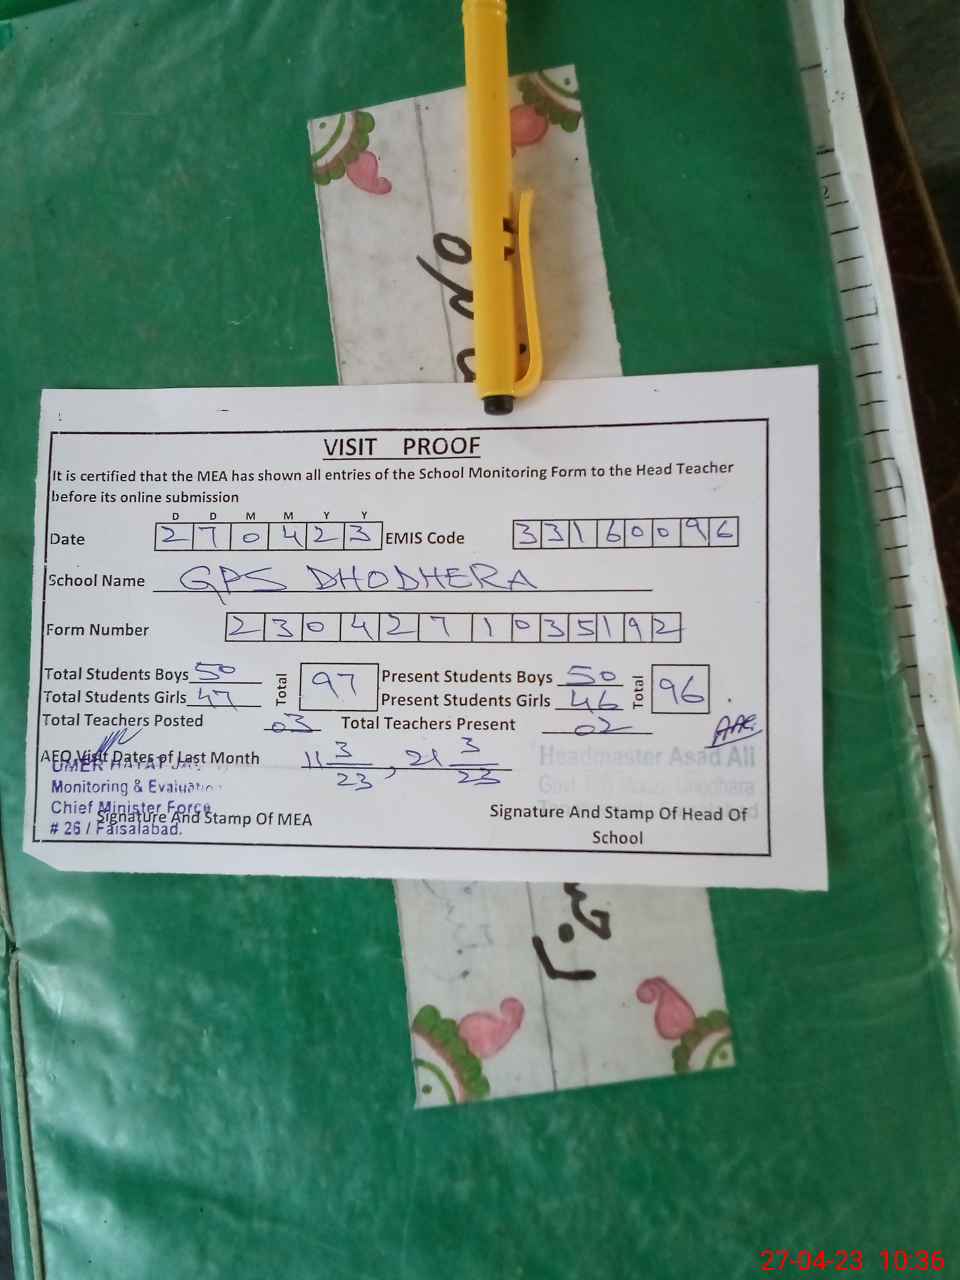 VISIT PROOF
It is certified that the MEA has shown all entries of the School Monitoring Form to the Head Teacher
before its online submission
D D M M Y Y
Date 2 7 0 4 2 3 EMIS Code 3 3 1 6 0 0 9 6
School Name GPS DHODHERA
Form Number 2 3 0 4 2 7 1 0 3 5 1 9 2
Total Students Boys 50 Total 97 Present Students Boys 50 Total 96
Total Students Girls 47 Present Students Girls 46
Total Teachers Posted 03 Total Teachers Present 02
AEO Visit Dates of Last Month 11 3/23, 21 3/23
Headmaster Asad Ali
UMER HAYAT
Monitoring & Evaluation
Chief Minister Force
# 26 / Faisalabad.
Signature And Stamp Of MEA
Signature And Stamp Of Head Of
School
27-04-23 10:36